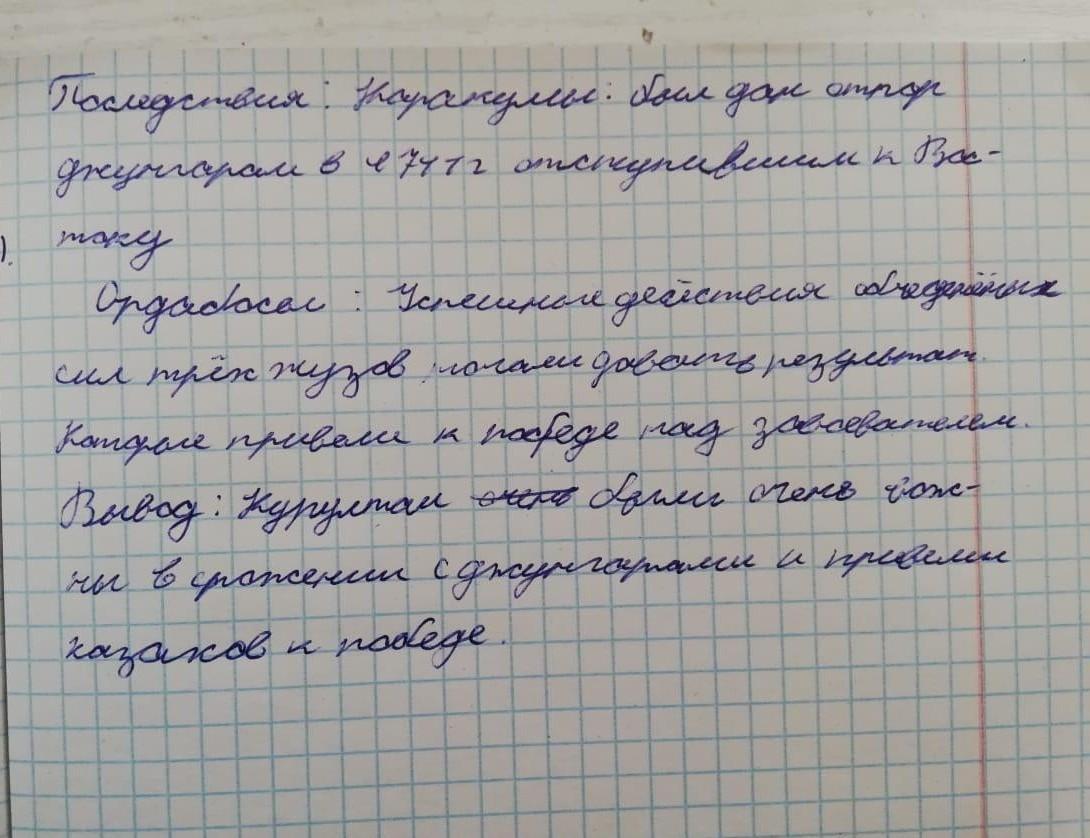 Последствия: Каракумы: был дан отпор
джунгарам в 1711 г отступившим к Вос-
току
Ордабасы: Успешные действия объединёных
сил трёх жузов начали давать результат.
Которые привели к победе над завоевателем.
Вывод: Курултаи очень были очень важ-
ны в сражении с джунгарами и привели
казахов к победе.